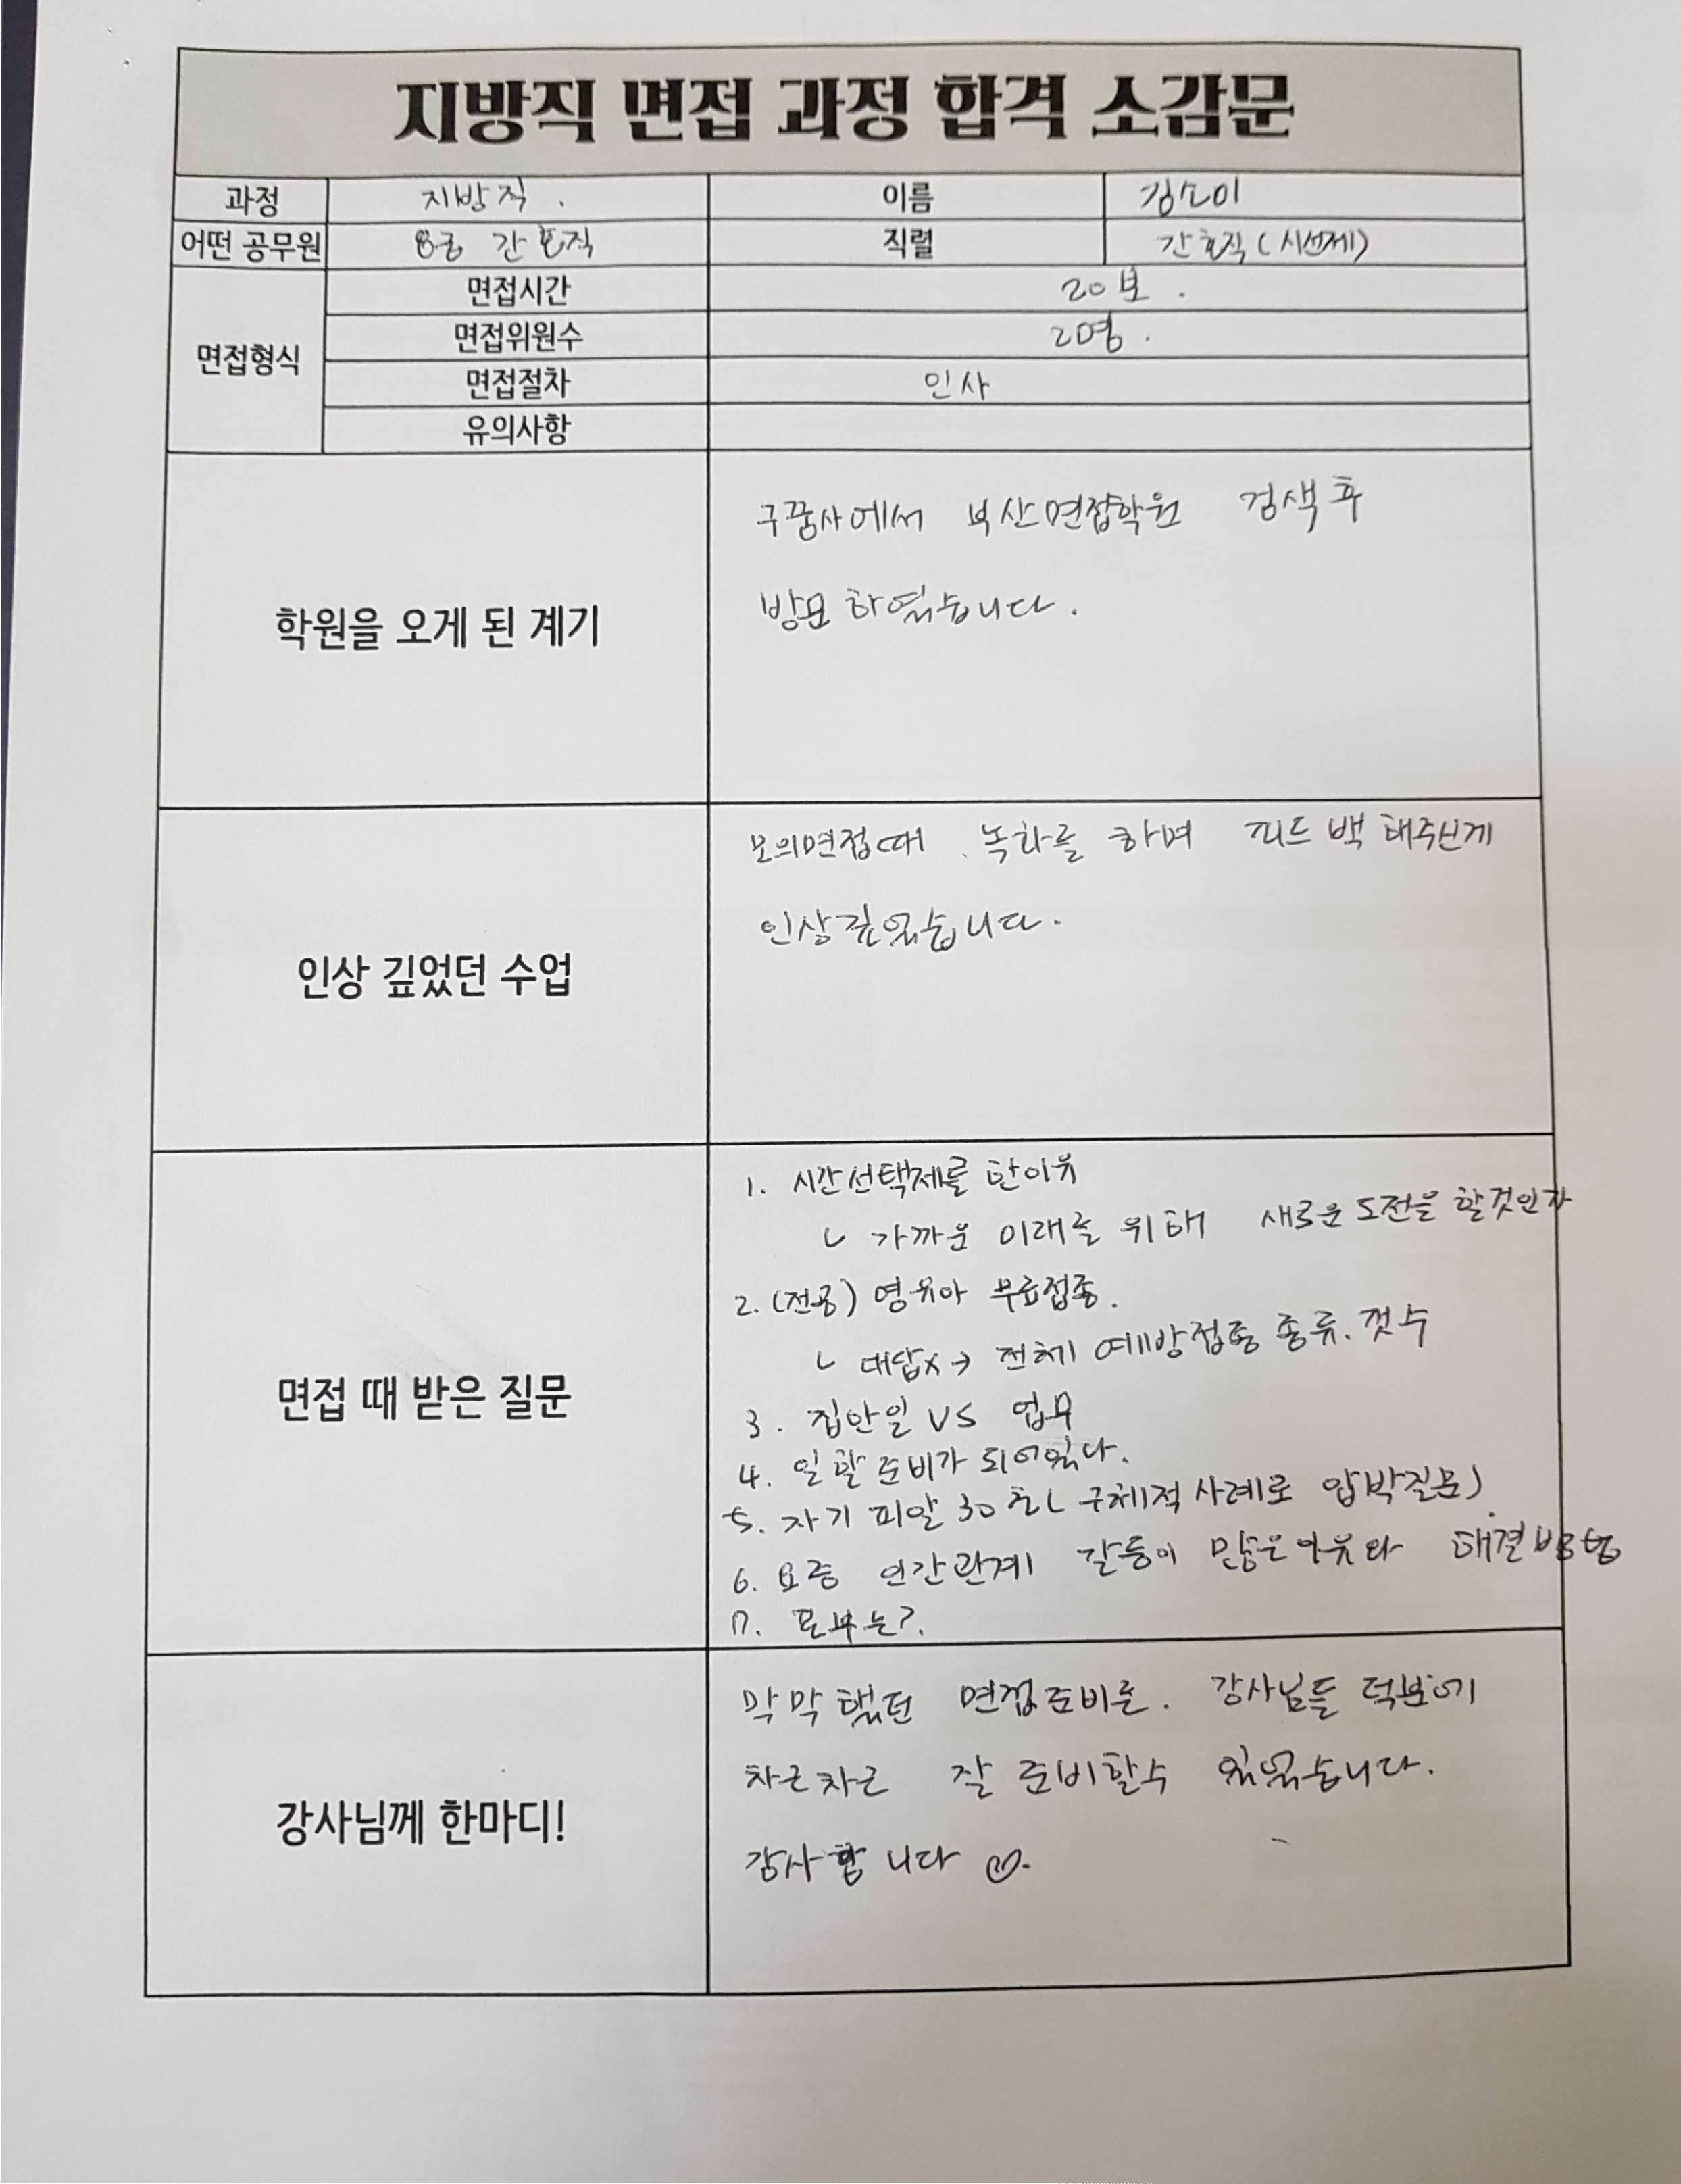 지방직 면접 과정 합격 소감문
과정 지방직. 이름 김소이
어떤 공무원 8급 간호직 직렬 간호직(시선제)
면접형식
면접시간 20분.
면접위원수 2명.
면접절차 인사
유의사항
구꿈사에서 부산면접학원 검색 후
방문하였습니다.
학원을 오게 된 계기
모의면접때 녹화를 하며 피드백 해주신게
인상깊었습니다.
인상 깊었던 수업
1. 시간선택제를 한이유
ㄴ 가까운 미래를 위해 새로운 도전을 할것인가
2. (전공) 영유아 무료접종.
ㄴ 대답x → 전체 예방접종 종류. 갯수
3. 집안일 VS 업무
4. 일할 준비가 되어있다.
5. 자기 피알 30초( 구체적 사례로 압박질문)
6. 요즘 인간관계 갈등이 많은이유와 해결방법
7. 포부는?
면접 때 받은 질문
막막했던 면접준비를. 강사님들 덕분에
차근차근 잘 준비할수 있었습니다.
감사합니다 ♡.
강사님께 한마디!